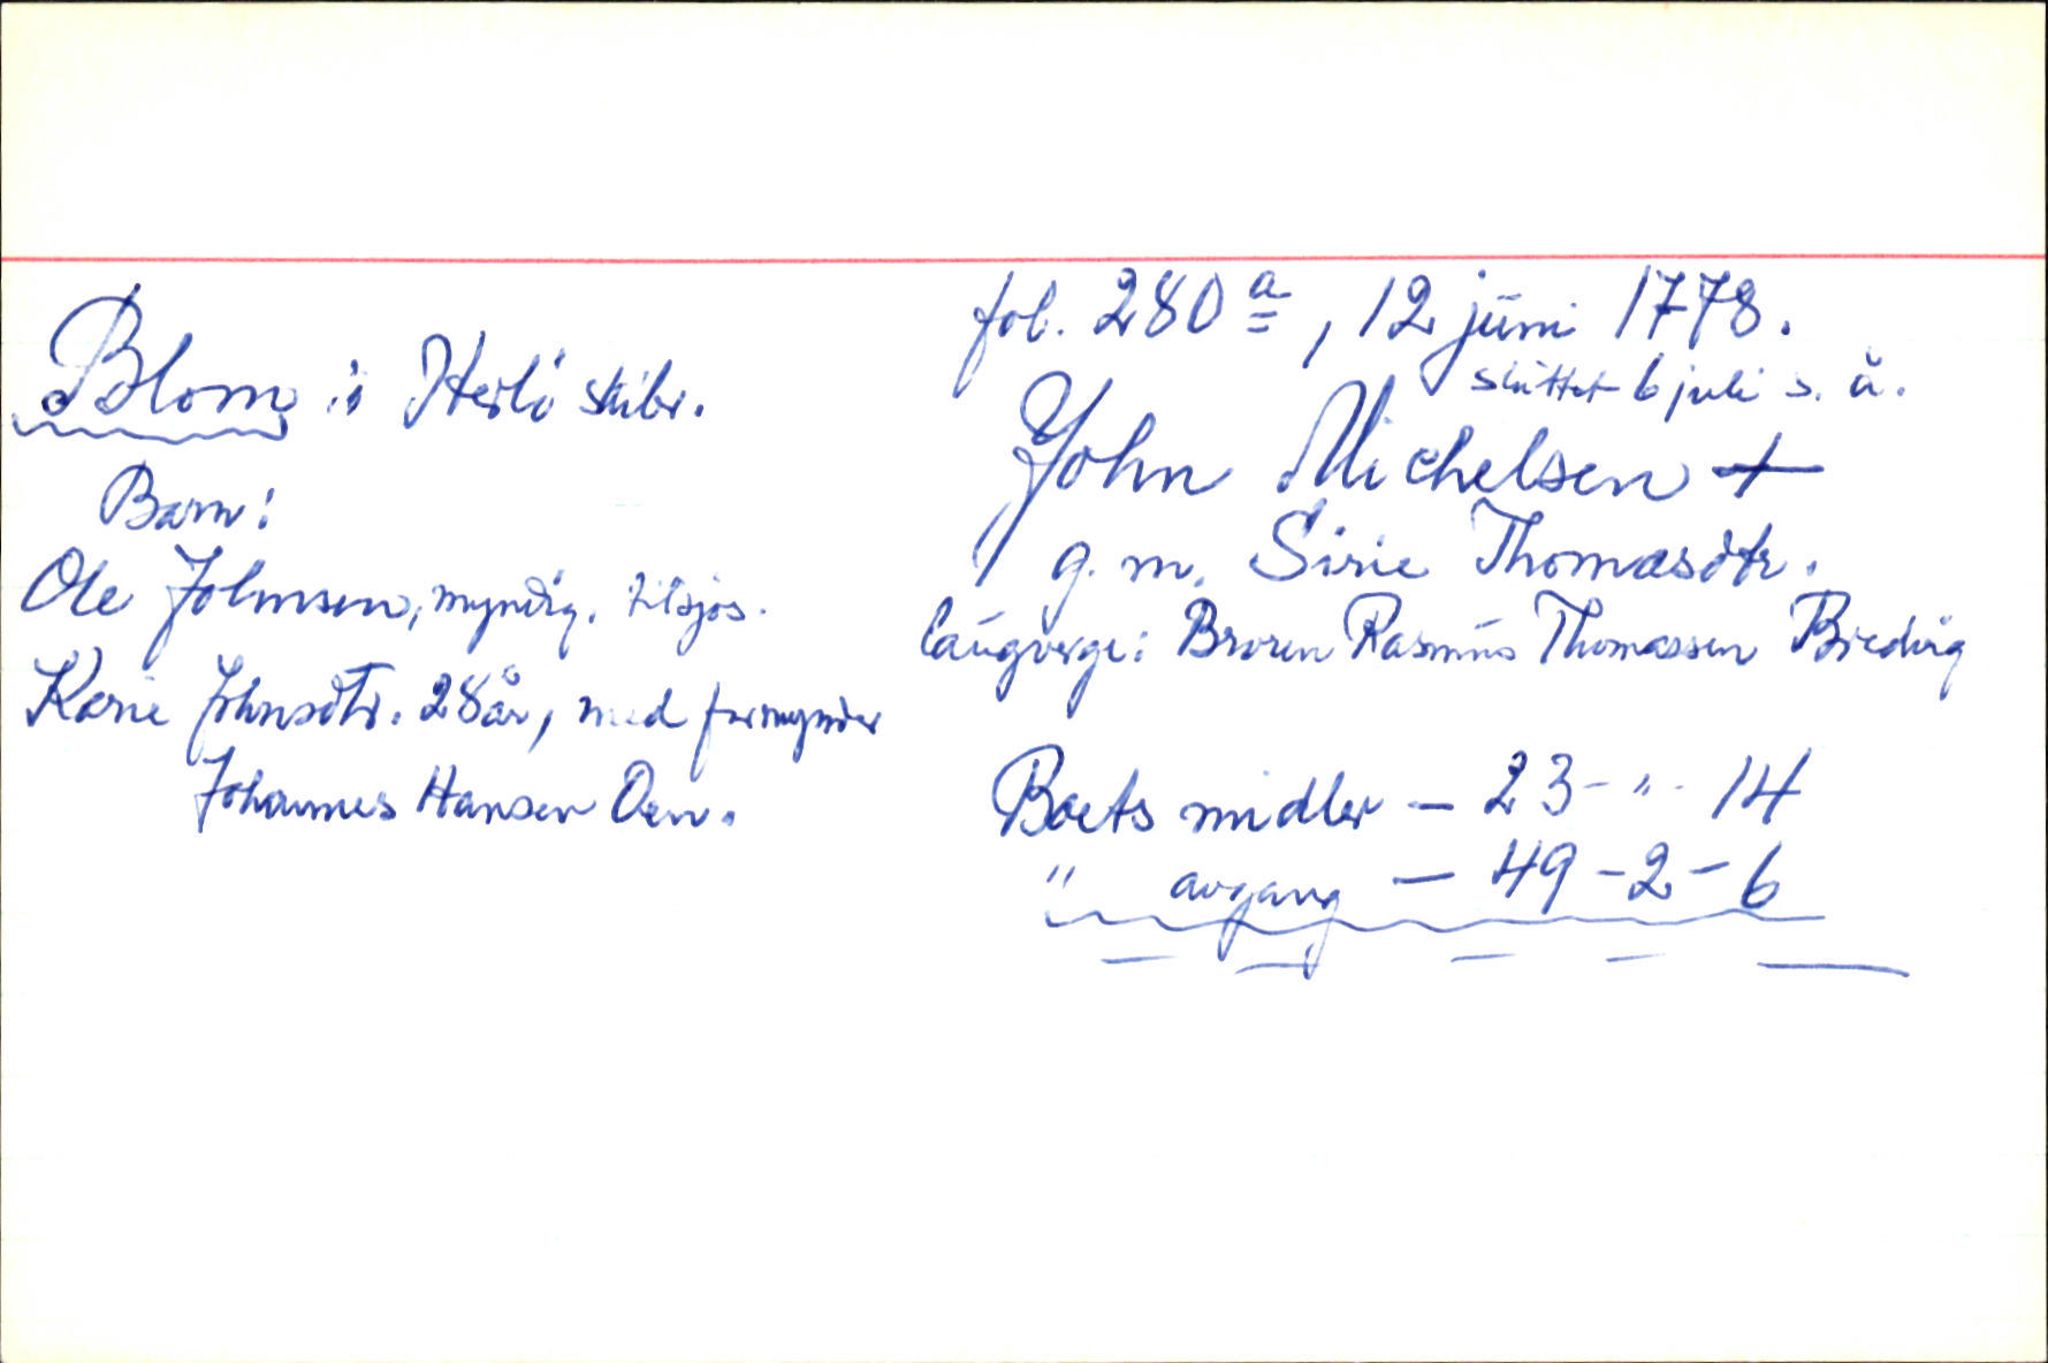 Blom i Herlö skibr.
Barn:
Ole Johnsen, myndig, tilsjøs.
Karie Johnsdtr. 28 år, med formynder
Johannes Hansen Oen.
fol. 280 a, 12 juni 1778.
sluttet 6 juli s. å.
John Michelsen +
g. m. Sirie Thomasdtr.
laugverge: Broren Rasmus Thomassen Bredvig
Boets midler - 23 - " - 14
" avgang - 49 - 2 - 6